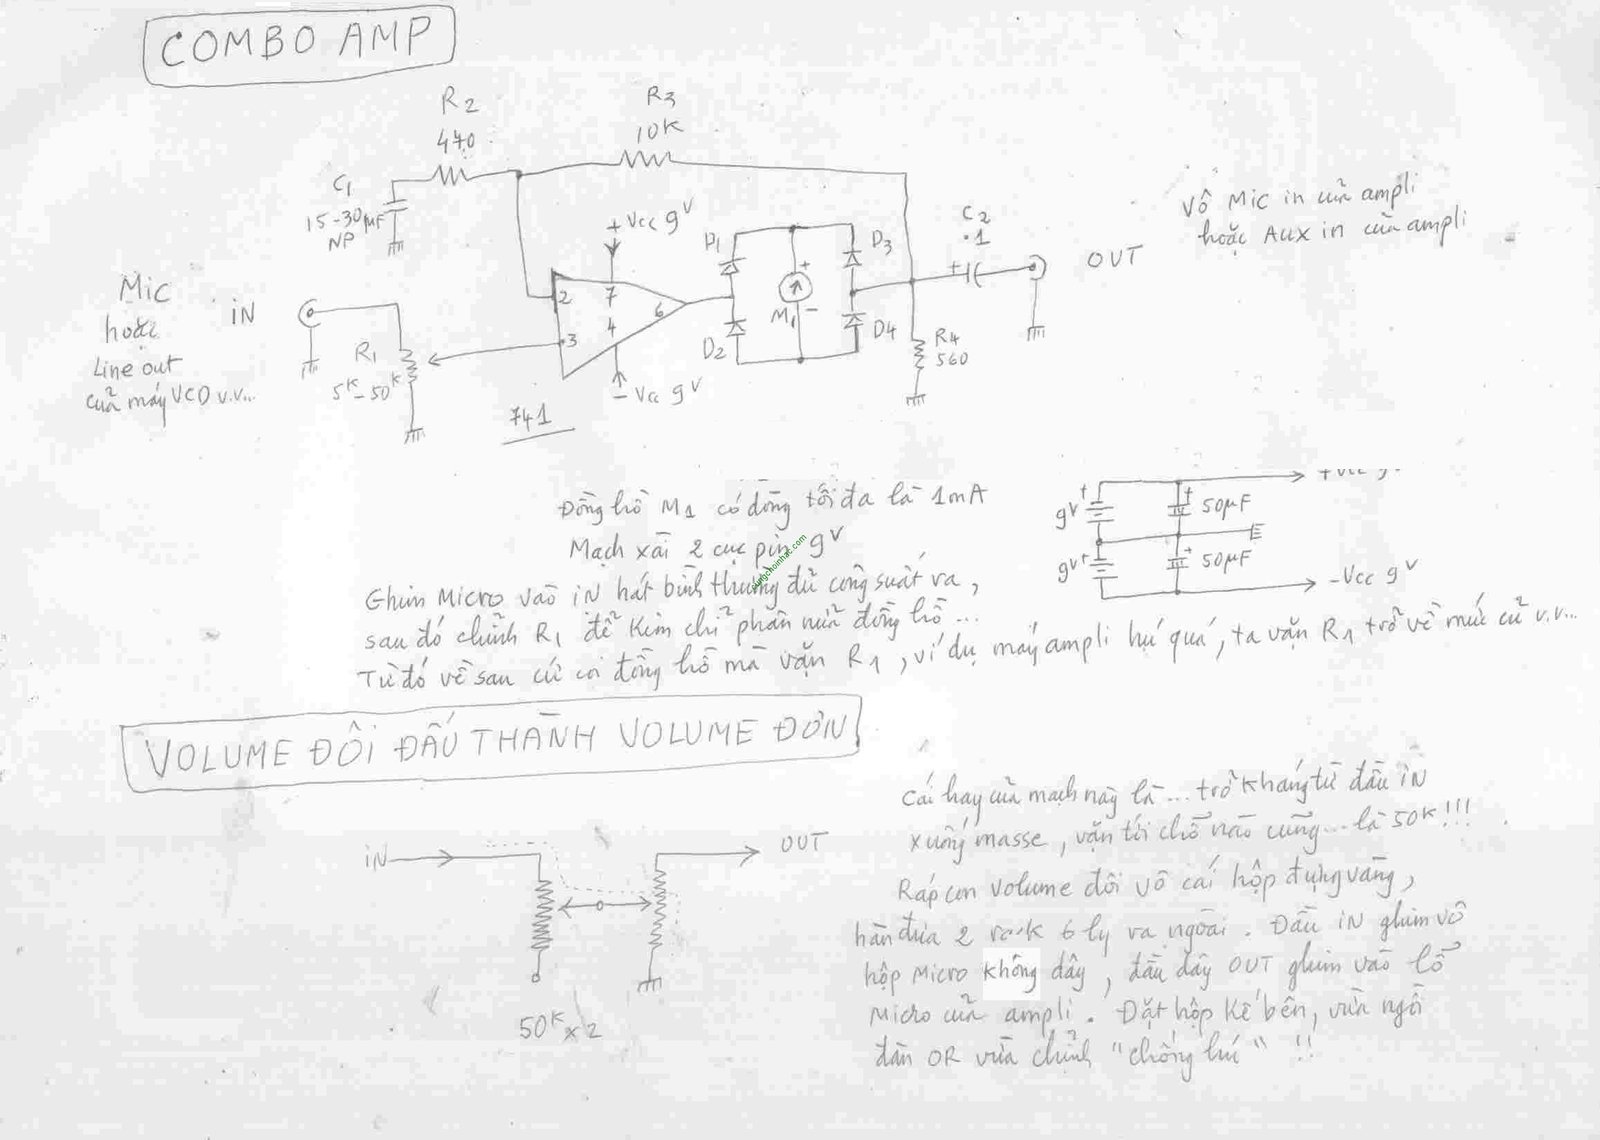 COMBO AMP
R2
470
R3
10K
C1
15-30µF
NP
+Vcc 9V
D1
D3
C2
.1
+
OUT
Vô Mic in của ampli
hoặc AUX in của ampli
Mic
hoặc
Line out
của máy VCD v.v...
iN
R1
5K-50K
2
7
6
3
4
+
M1
-
D2
D4
R4
560
-Vcc 9V
741
Đồng hồ M1 có dòng tối đa là 1mA
Mạch xài 2 cục pin 9V
Ghim Micro vào iN hát bình thường đủ công suất ra,
sau đó chỉnh R1 để Kim chỉ phân nửa đồng hồ...
Từ đó về sau cứ coi đồng hồ mà vặn R1, ví dụ máy ampli hú quá, ta vặn R1 trở về mức cũ v.v...
+Vcc 9
+
9V
+
50µF
9V+
+
50µF
-Vcc 9V
cungchoinhac.com
VOLUME ĐÔi ĐẤU THÀNH VOLUME ĐƠN
iN
OUT
50K x 2
Cái hay của mạch này là... trở kháng từ đầu iN
xuống masse, vặn tới chỗ nào cũng... là 50K!!!
Ráp con Volume đôi vô cái hộp đựng vàng,
hàn đưa 2 rắck 6 ly ra ngoài. Đầu iN ghim vô
hộp Micro không dây, đầu dây OUT ghim vào lỗ
Micro của ampli. Đặt hộp kế bên, vừa ngồi
đàn OR vừa chỉnh "chống hú" !!